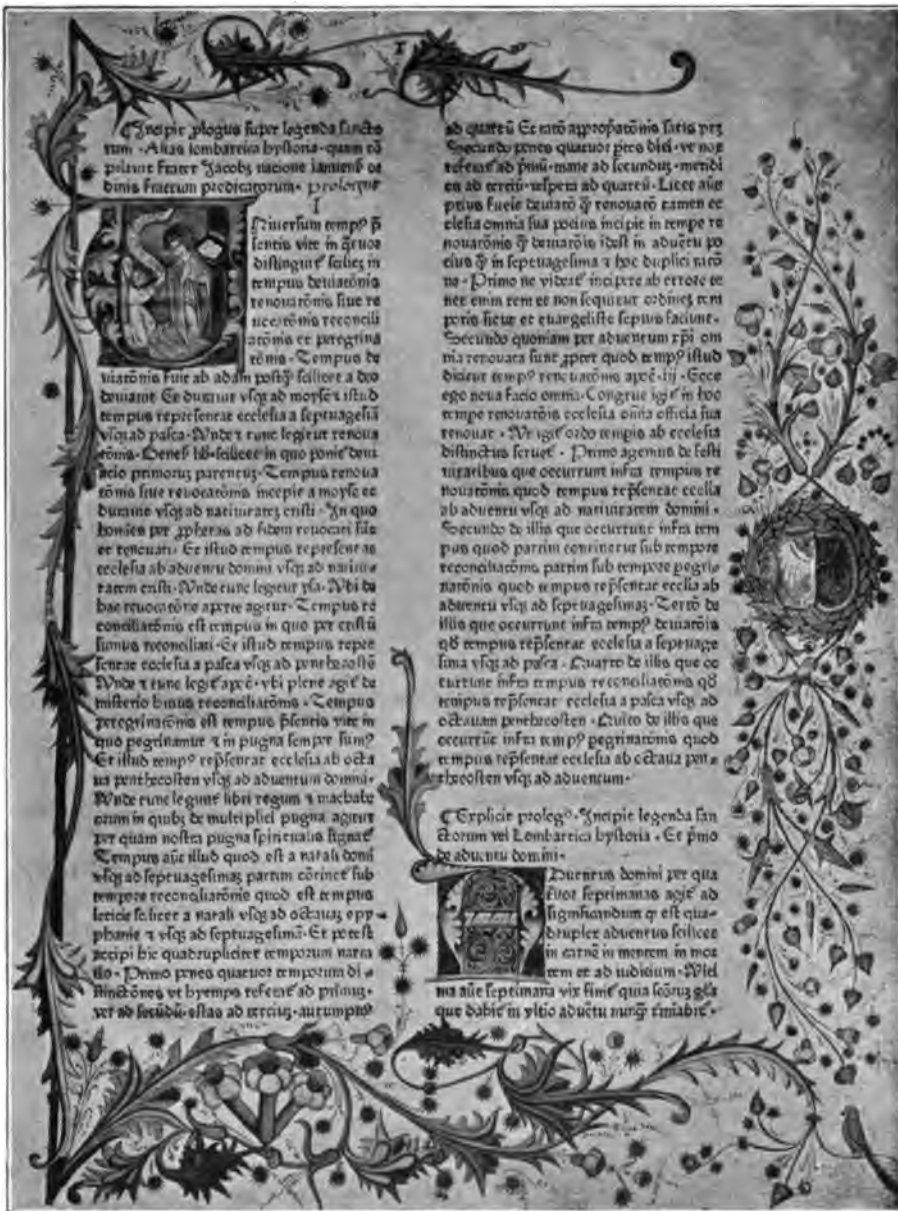 Incipit ꝓlogus super legenda sancto
rum · Alias lombartica hystoria · quam cō
pilauit Frater Jacobꝫ nacione ianuenꝭ or
dinis fratrum predicatorum · prologus
I
Niuersum tempꝰ p̄
sentis vite in q̄tuor
distinguit᷑ scilicꝫ in
tempus deuiatōnis
renouatōnis siue re
uocatōnis reconcili
atōnis et peregrina
tōnis · Tempus de
uiatōnis fuit ab adam postq̄ʒ scilicet a deo
deuiauit Et durauit vsqꝫ ad moysen ⁊ istud
tempus representat ecclesia a septuagesīa
vsqꝫ ad pasca · Vnde ⁊ tunc legitur
scilicet in quo ponit᷑ deui
acio primorꝝ parentuꝫ · Tempus renoua
tōnis siue reuocatōnis incepit a moyse et
durauit vsqꝫ ad natiuitateꝫ cristi · In quo
hoīes per ꝓphetas ad fidem reuocati sūt
et renouati · Et istud tempus representat
ecclesia ab aduentu domini vsqꝫ ad natiui
tatem cristi · Vnde tunc legitur ysa · Vbi de
hac reuocatōne aperte agitur · Tempus re
conciliatōnis est tempus in quo per cristū
sumus reconciliati · Et istud tempus repre
sentat ecclesia a pasca vsqꝫ ad penthecostē
Vnde ⁊ tunc legit᷑ apoc̄ · vbi plene agit᷑ de
misterio huius reconciliatōnis · Tempus
peregrinatōnis est tempus p̄sentis vite in
quo pegrinamur ⁊ in pugna semper sumꝰ
Et illud tempꝰ repsentat ecclesia ab octa
ua penthecosten vsqꝫ ad aduentum domini ·
Vnde tunc legunt᷑ libri regum ⁊ machabe
orum in quibꝫ de multiplici pugna agitur
per quam nostra pugna spiritualis signat᷑
Tempus aūt illud quod est a natali domī
vsqꝫ ad septuagesimaꝫ partim cōtinet᷑ sub
tempore reconciliatōnis quod est tempus
leticie scilicet a natali vsqꝫ ad octauaꝫ epy
phanie ⁊ vsqꝫ ad septuagesimā · Et potest
accipi hic quadrupliciter temporum varia
tio · Primo penes quatuor temporum di
stinctōnes vt hyemps referat᷑ ad primuꝫ ·
ver ad secūdū · estas ad terciuꝫ · autumpnꝰ
ad quartū Et ratō appropatōnis satis pꝫ
Secundo penes quatuor ptes diei · vt nox
referat᷑ ad p̄mū · mane ad secunduꝫ · meridi
es ad terciū · vespera ad quartū · Licet aūt
prius fuerit deuiatō q̄ʒ renouatō tamen ec
clesia omnia sua pocius incipit in tempe re
nouatōnis q̄ʒ deuiatōis idest in aduētu po
cius q̄ʒ in septuagesima ⁊ hoc duplici ratō
ne · Primo ne videat᷑ incipere ab errore te
net enim rem et non sequitur ordineꝫ tem
poris sicut et euangeliste sepius faciunt ·
Secundo quoniam per aduentum xp̄i om
nia renouata sunt ꝓpter quod tempꝰ istud
dicitur tempꝰ renouatōnis apoc̄ · iij · Ecce
ego noua facio omnia · Congrue igit᷑ in hoc
tempe renouatōis ecclesia om̄ia officia sua
renouat · Vt igit᷑ ordo tempis ab ecclesia
distinctus seruet᷑ · Primo agemus de festi
uitatibus que occurrunt infra tempus re
nouatōnis quod tempus rep̄sentat ecclīa
ab aduentu vsqꝫ ad natiuitatem domini ·
Secundo de illis que occurrunt infra tem
pus quod partim continetur sub tempore
reconciliatōnis partim sub tempore pegri
natōnis quod tempus rep̄sentat ecclīa ab
aduentu vsqꝫ ad septuagesimaꝫ · Tertō de
illis que occurrunt infra tempꝰ deuiatōis
qd̄ tempus rep̄sentat ecclesia a septuage
sima vsqꝫ ad pasca · Quarto de illis que oc
currunt infra tempus reconciliatōnis qd̄
tempus rep̄sentat ecclesia a pasca vsqꝫ ad
octauam penthecosten · Quīto de illis que
occurrūt infra tempꝰ pegrinatōnis quod
tempus rep̄sentat ecclesia ab octaua pen
thecosten vsqꝫ ad aduentum ·
Explicit prologꝰ · Incipit legenda san
ctorum vel Lombartica hystoria · Et p̄mo
de aduentu domini ·
Aduentus domini per qua
tuor septimanas agit᷑ ad
significandum ꝙ est qua
druplex aduentus scilicet
in carnē in mentem in mor
tem et ad iudicium · Vlti
ma aūt septimana vix finit᷑ quia sc̄oruꝫ gl̄a
que dabit᷑ in vltīo aduētu nunq̄ʒ t̄minabit᷑ ·